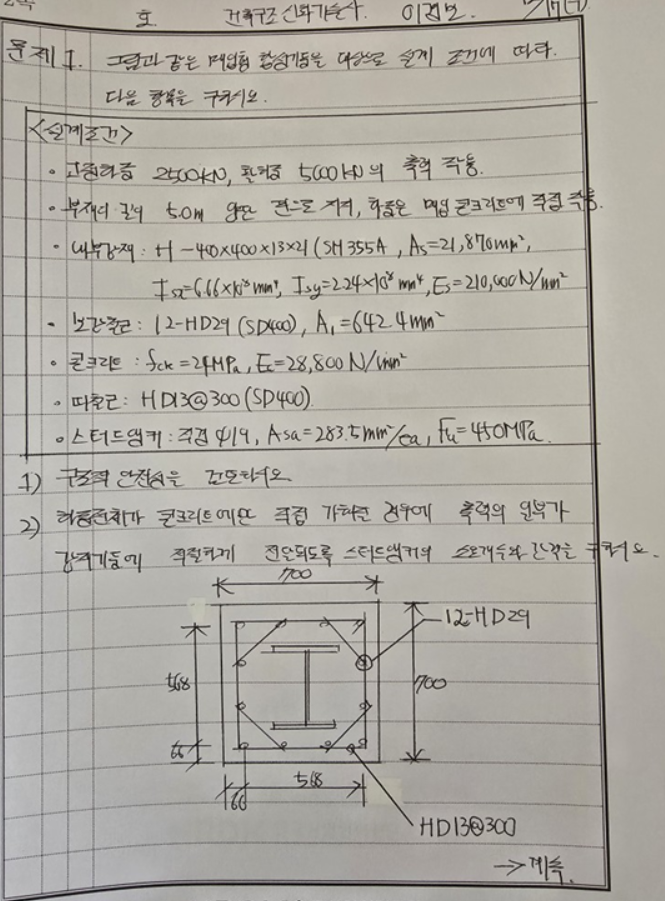 호. 건축구조심화기술사. 이검보.
문제 1. 그림과 같은 매입형 합성기둥을 대상으로 설계 조건에 따라
다음 항목을 구하시오.
<설계조건>
· 고정하중 2500kN, 활하중 5000kN의 축력 작용.
· 부재의 길이 5.0m 양단 핀으로 지지, 하중은 매입 콘크리트에 직접 작용.
· 내부강재 : H-400×400×13×21 (SH355A, As=21,870mm²,
Isx=6.66×10⁸mm⁴, Isy=2.24×10⁸mm⁴, Es=210,000N/mm²
· 보강철근 : 12-HD29 (SD400), A₁=642.4mm²
· 콘크리트 : fck=24MPa, Ec=28,800N/mm²
· 띠철근 : HD13@300 (SD400).
· 스터드앵커 : 직경 φ19, Asa=283.5mm²/ea, Fu=450MPa.
1) 구조적 안전성을 검토하시오.
2) 하중전체가 콘크리트에만 직접 가해진 경우에 축력의 일부가
강재기둥에 적절하게 전달되도록 스터드앵커의 소요개수와 간격을 구하시오.
700
12-HD29
568
700
66
568
66
HD13@300
→계속.